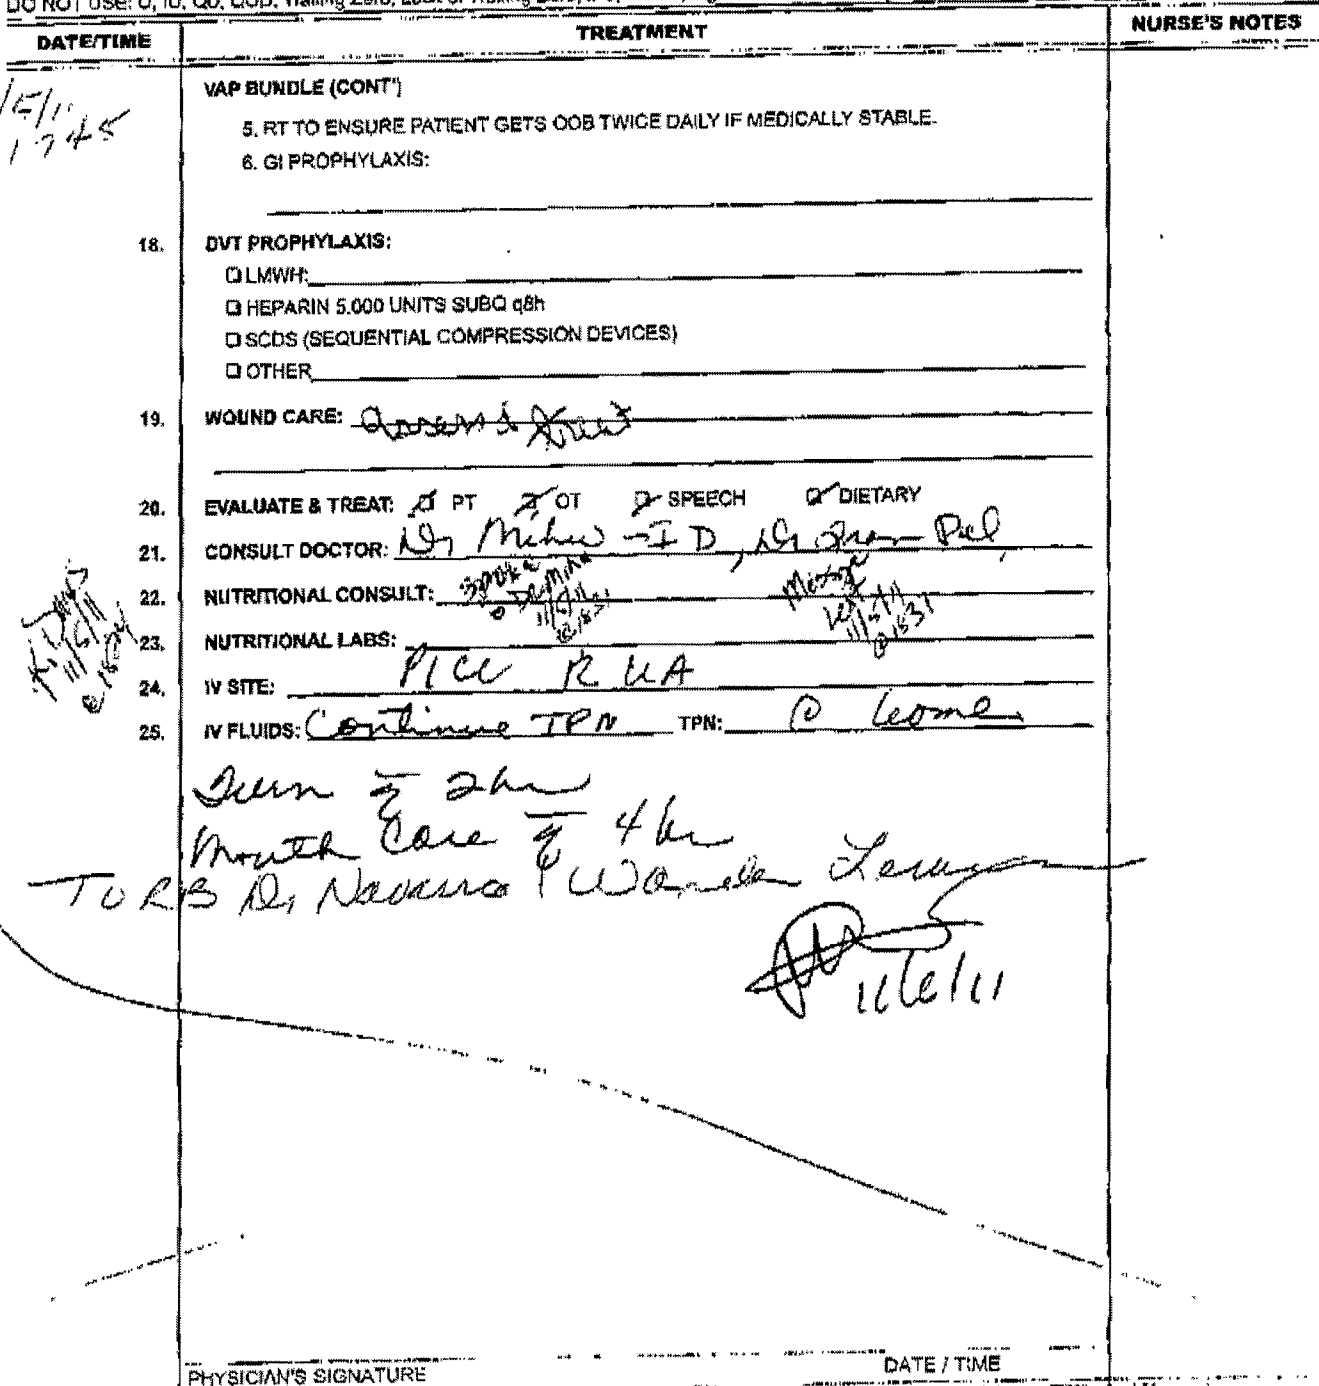 DO NOT USE: U, IU, QD, QOD, Trailing Zero,
DATE/TIME TREATMENT NURSE'S NOTES
VAP BUNDLE (CONT')
1745
5. RT TO ENSURE PATIENT GETS OOB TWICE DAILY IF MEDICALLY STABLE.
6. GI PROPHYLAXIS:
18. DVT PROPHYLAXIS:
LMWH:
HEPARIN 5.000 UNITS SUBQ q8h
SCDS (SEQUENTIAL COMPRESSION DEVICES)
OTHER
19. WOUND CARE: Assess & treat
20. EVALUATE & TREAT: PT OT SPEECH DIETARY
21. CONSULT DOCTOR: Dr - ID, Dr
22. NUTRITIONAL CONSULT:
11/5/11
11/5/11
@ 1531
23. NUTRITIONAL LABS:
11/5/11
24. IV SITE: PICC R UA
25. IV FLUIDS: Continue TPN TPN: @
Turn q 2hr
Mouth Care q 4hr
TORB Dr Navarro / Wanda
11/6/11
PHYSICIAN'S SIGNATURE DATE / TIME